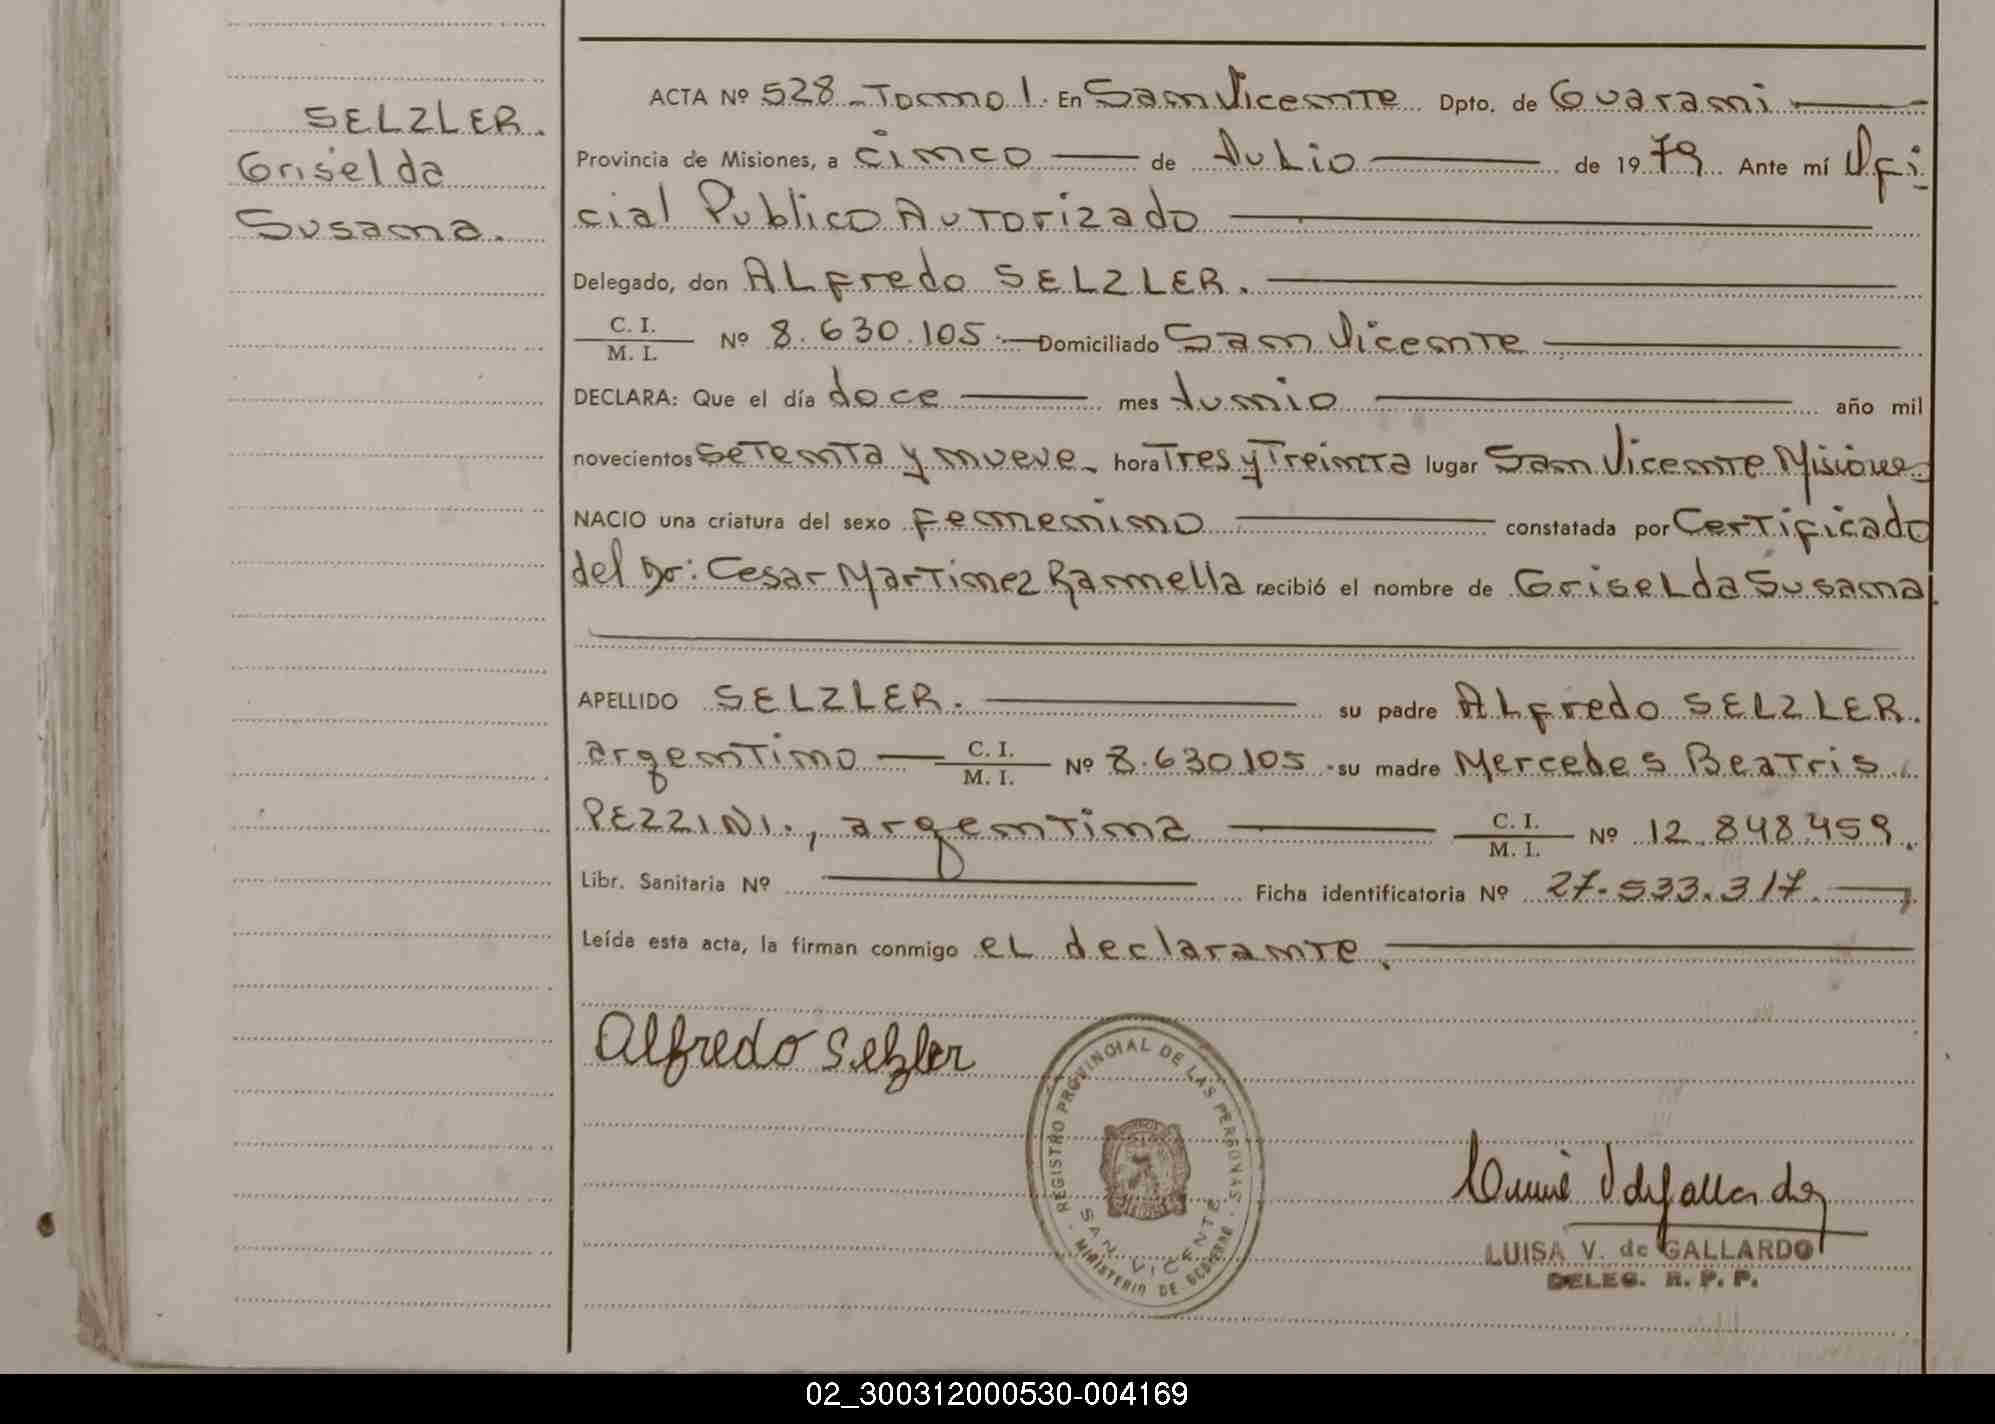 SELZLER.
Griselda
Susana.
ACTA Nº 528 - Tomo 1. En San Vicente Dpto. de Guarani
Provincia de Misiones, a cinco de Julio de 1979 Ante mí Ofi
cial Publico Autorizado
Delegado, don Alfredo SELZLER.
C. I.
M. I. Nº 8.630.105. Domiciliado San Vicente
DECLARA: Que el día doce mes Junio año mil
novecientos setenta y nueve hora Tres y Treinta lugar San Vicente Misiones
NACIO una criatura del sexo femenino constatada por Certificado
del Dr: Cesar Martinez Ramella recibió el nombre de Griselda Susana.
APELLIDO SELZLER. su padre Alfredo SELZLER.
argentino C. I. M. I. Nº 8.630105 su madre Mercedes Beatris
PEZZINI., argentina C. I. M. I. Nº 12.848.459.
Libr. Sanitaria Nº Ficha identificatoria Nº 27.533.317.
Leída esta acta, la firman conmigo el declarante.
Alfredo Selzler
REGISTRO PROVINCIAL DE LAS PERSONAS
SAN VICENTE
MINISTERIO DE GOBIERNO
LUISA V. de GALLARDO
DELEG. R. P. P.
02_300312000530-004169